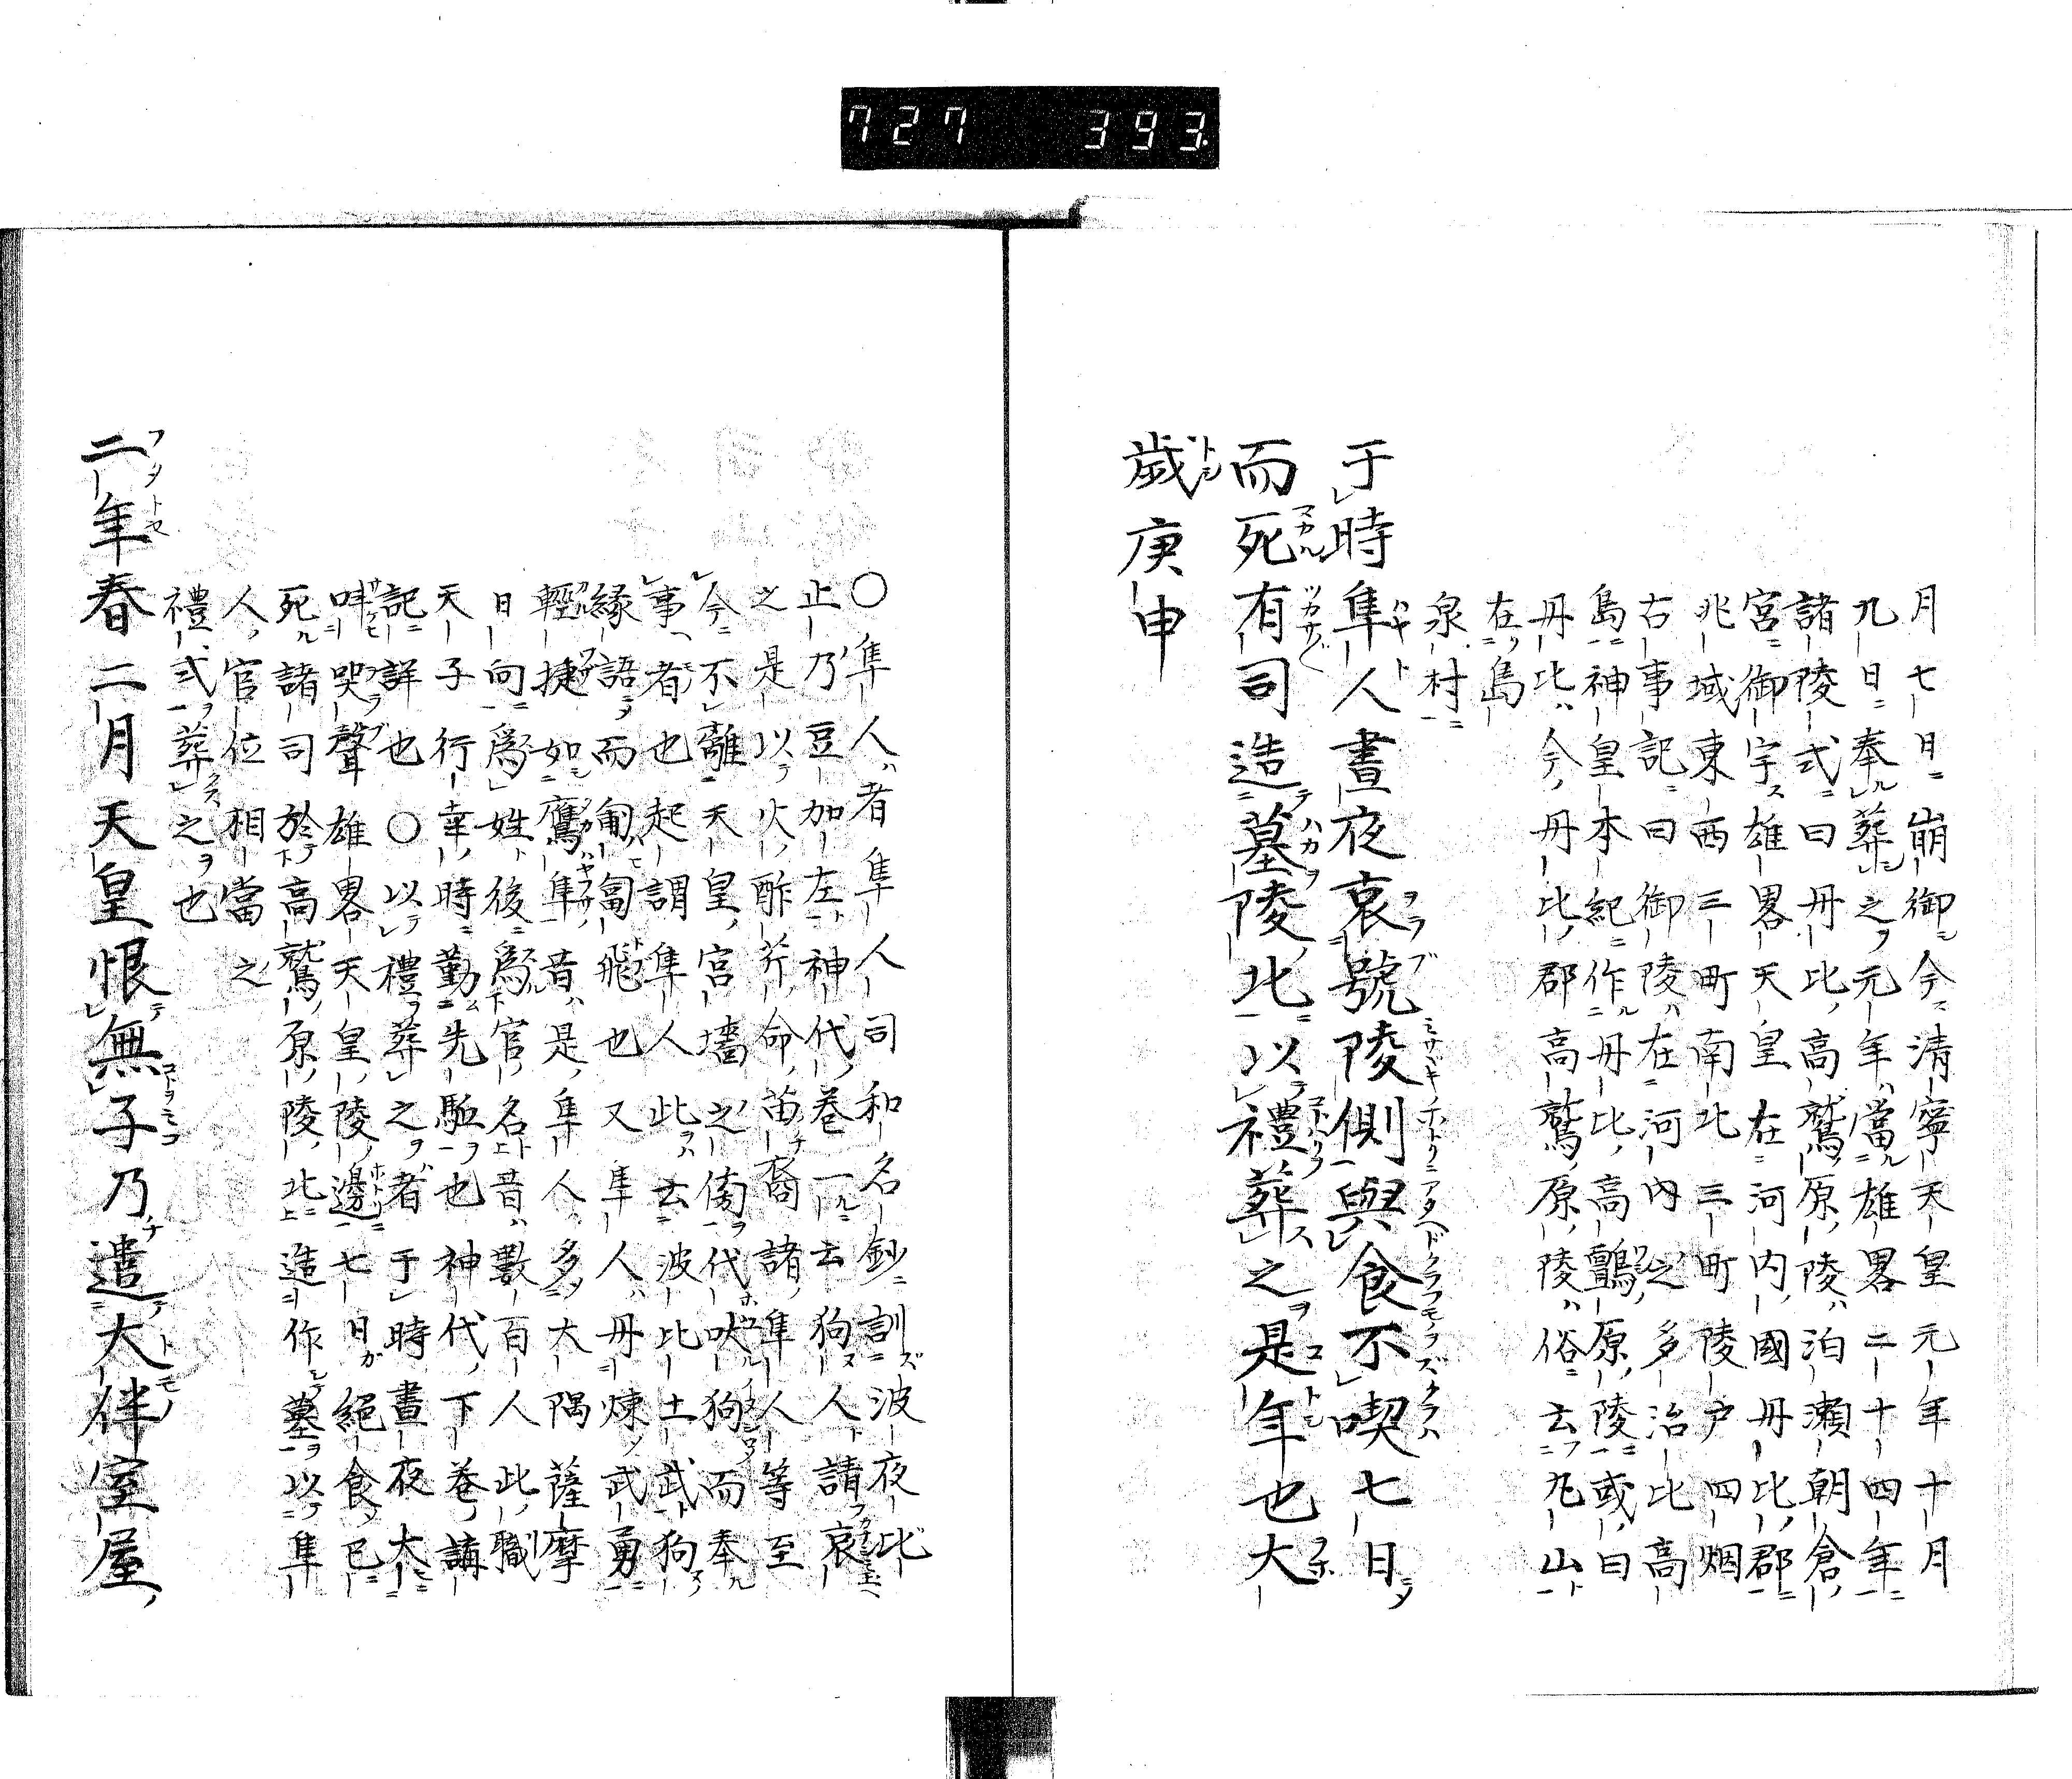 727 393
月七日崩御今清寧天皇元年十月
九日奉葬之元年當雄畧二十四年
諸陵式曰丹比高鷲原陵泊瀬朝倉
宮御宇雄畧天皇在河内國丹比郡
兆域東西三町南北三町陵戸四烟
古事記曰御陵在河内之多治比高
島神皇本紀作丹比高鸇原陵或曰
丹比今丹比郡高鷲原陵俗云丸山
在島
泉村
于時隼人晝夜哀號陵側與食不喫七日
而死有司造墓陵北以禮葬之是年也大
歲庚申
○隼人者隼人司和名鈔訓波夜比
止乃豆加左神代巻一云狗人請哀
之是以火酢芹命苗裔諸隼人等至
今不離天皇宮墻之傍代吠狗而奉
事者也起謂隼人此云波比土武狗
縁語而匍匐飛也又隼人丹煉武勇
輕捷如鷹隼昔是隼人多大隅薩摩
日向爲姓後爲官名昔數百人此職
天子行幸時勤先駈也神代下巻講
記詳也○以禮葬之者于時晝夜大
呌哭聲雄畧天皇陵邊七日絕食已
死諸司於高鷲原陵北造作墓以隼
人官位相當之
禮式葬之也
二年春二月天皇恨無子乃遣大伴室屋